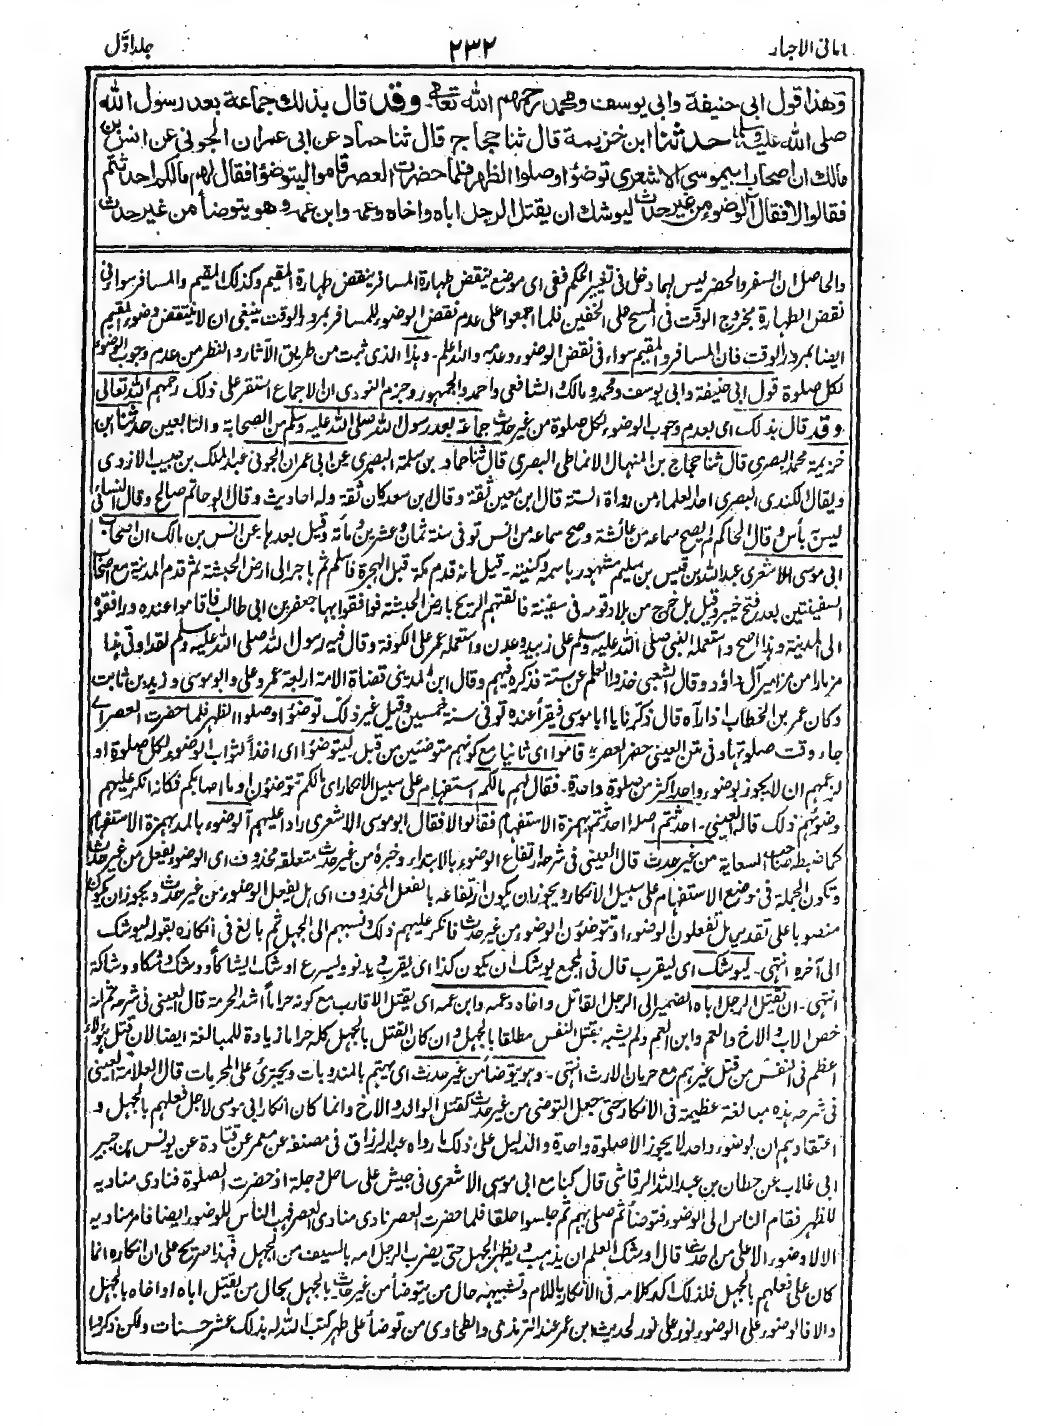 امانی الاحبار ۲۳۲ جلد اوّل
وهذا قول ابی حنیفة وابی یوسف ومحمد رحمهم الله تعالی وقد قال بذلك جماعة بعد رسول الله
صلی الله علیه وسلم حدثنا ابن خزیمة قال ثنا حجاج قال ثنا حماد عن ابی عمران الجونی عن انس بن
مالك ان اصحاب ابی موسی الاشعری توضؤا وصلوا الظهر فلما حضرت العصر قاموا لیتوضؤا فقال لهم مالكم احدثتم
فقالوا لا فقال آلوضوء من غیر حدث لیوشك ان یقتل الرجل اباه واخاه وعمه وابن عمه وهو یتوضأ من غیر حدث
والحاصل ان السفر والحضر لیس لهما دخل فی تغییر الحكم ففی ای موضع ینقض طهارة المسافر ینقض طهارة المقیم وكذلك المقیم والمسافر سواء فی
نقض الطهارة بخروج الوقت فی المسح علی الخفین فلما اجمعوا علی عدم نقض الوضوء للمسافر بمرور الوقت ینبغی ان لا ینتقض وضوء المقیم
ایضا بمرور الوقت فان المسافر والمقیم سواء فی نقض الوضوء وعدمه والله اعلم۔ وهذا الذی ثبت من طریق الآثار والنظر من عدم وجوب الوضوء
لكل صلوة قول ابی حنیفة وابی یوسف ومحمد ومالك والشافعی واحمد والجمهور وجزم النووی ان الاجماع استقر علی ذلك رحمهم الله تعالی
وقد قال بذلك ای بعدم وجوب الوضوء لكل صلوة من غیر حدث جماعة بعد رسول الله صلی الله علیه وسلم من الصحابة والتابعین حدثنا ابن
خزیمة محمد البصری قال ثنا حجاج بن المنهال الانماطی البصری قال ثنا حماد بن سلمة البصری عن ابی عمران الجونی عبد الملك بن حبیب الازدی
ویقال الكندی البصری احد العلماء من رواة الستة قال ابن معین ثقة وقال ابن سعد كان ثقة وله احادیث وقال ابو حاتم صالح وقال النسائی
لیس به بأس وقال الحاكم لم یصح سماعه من عائشة وصح سماعه من انس توفی سنة ثمان وعشرین ومأة وقیل بعدها عن انس بن مالك ان اصحاب
ابی موسی الاشعری عبد الله بن قیس بن سلیم مشهور باسمه وكنیته۔ قیل انه قدم مكة قبل الهجرة فاسلم ثم هاجر الی ارض الحبشة ثم قدم المدینة مع اصحاب
السفینتین بعد فتح خیبر وقیل بل خرج من بلاد قومه فی سفینة فالقتهم الریح بارض الحبشة فوافقوا بها جعفر بن ابی طالب فاقاموا عنده ورافقوه
الی المدینة وهذا اصح واستعمله النبی صلی الله علیه وسلم علی زبید وعدن واستعمله عمر علی الكوفة وقال فیه رسول الله صلی الله علیه وسلم لقد اوتی هذا
مزمارا من مزامیر آل داؤد وقال الشعبی خذوا العلم عن ستة فذكره فیهم وقال ابن المدینی قضاة الامة اربعة عمر وعلی وابو موسی وزید بن ثابت
وكان عمر بن الخطاب اذا رآه قال ذكرنا یا ابا موسی فیقرأ عنده توفی سنة خمسین وقیل غیر ذلك توضؤا وصلوا الظهر فلما حضرت العصر ای
جاء وقت صلوتها وفی متن العینی حضر العصر قاموا ای ثانیا مع كونهم متوضئین من قبل لیتوضؤا ای اخذا لثواب الوضوء لكل صلوة او
لزعمهم ان لا یجوز بوضوء واحد اكثر من صلوة واحدة۔ فقال لهم مالكم استفهام علی سبیل الانكار ای مالكم تتوضئون او ما اصابكم فكانه انكر علیهم
وضوئهم ذلك قاله العینی۔ احدثتم اصله ااحدثتم بهمزة الاستفهام فقالوا لا فقال ابو موسی الاشعری رادا علیهم آلوضوء بالمد بهمزة الاستفهام
كما ضبطه صاحب السعایة من غیر حدث قال العینی فی شرحه ارتفاع الوضوء بالابتداء وخبره من غیر حدث متعلقه محذوف ای الوضوء یفعل من غیر حدث
وتكون الجملة فی موضع الاستفهام علی سبیل الانكار ویجوز ان یكون ارتفاعه بالفعل المحذوف ای بل یفعل الوضوء من غیر حدث ویجوز ان یكون
منصوبا علی تقدیر بل تفعلون الوضوء او تتوضئون الوضوء من غیر حدث فانكر علیهم ذلك ونسبهم الی الجهل ثم بالغ فی انكاره بقوله لیوشك
الی آخره انتهی۔ لیوشك ای لیقرب قال فی المجمع یوشك ان یكون كذا ای یقرب ویدنو ویسرع اوشك ایشاكا ووشك وشكا ووشاكة
انتهی۔ ان یقتل الرجل اباه الضمیر الی الرجل القاتل واخاه وعمه وابن عمه ای یقتل الاقارب مع كونه حراما اشد الحرمة قال العینی فی شرحه ثم انه
خص الاب والاخ والعم وابن العم ولم یشبه بقتل النفس مطلقا بالجهل وان كان القتل بالجهل كله حراما زیادة للمبالغة ایضا لان قتل هؤلاء
اعظم فی النفس من قتل غیرهم مع حرمان الارث انتهی۔ وهو یتوضأ من غیر حدث ای یهتم بالمندوبات ویجترئ علی المحرمات قال العلامة العینی
فی شرحه هذه مبالغة عظیمة فی الانكار حتی جعل التوضی من غیر حدث كقتل الوالد والاخ وانما كان انكار ابی موسی لاجل فعلهم بالجهل و
اعتقادهم ان بوضوء واحد لا یجوز الا صلوة واحدة والدلیل علی ذلك ما رواه عبد الرزاق فی مصنفه عن معمر عن قتادة عن یونس بن جبیر
ابی غلاب عن حطان بن عبد الله الرقاشی قال كنا مع ابی موسی الاشعری فی جیش علی ساحل دجلة اذ حضرت الصلوة فنادی منادیه
للظهر فقام الناس الی الوضوء فتوضأ ثم صلی بهم ثم جلسوا حلقا فلما حضرت العصر نادی منادی العصر فهب الناس للوضوء ایضا فامر منادیه
الا لا وضوء الا علی من احدث قال اوشك العلم ان یذهب ویظهر الجهل حتی یضرب الرجل امه بالسیف من الجهل فهذا صریح علی ان انكاره انما
كان علی فعلهم بالجهل فلذلك اكد كلامه فی الانكار باللام وتشبیهه حال من یتوضأ من غیر حدث بالجهل بحال من یقتل اباه او اخاه بالجهل
والا فالوضوء علی الوضوء نور علی نور لحدیث ابن عمر عند الترمذی والطحاوی من توضأ علی طهر كتب الله له بذلك عشر حسنات ولكن ذكروا